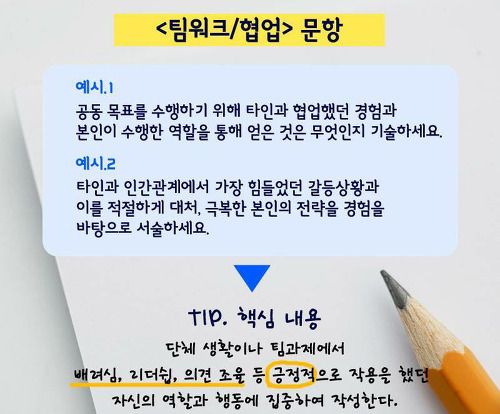 <팀워크/협업> 문항
예시.1
공동 목표를 수행하기 위해 타인과 협업했던 경험과
본인이 수행한 역할을 통해 얻은 것은 무엇인지 기술하세요.
예시.2
타인과 인간관계에서 가장 힘들었던 갈등상황과
이를 적절하게 대처, 극복한 본인의 전략을 경험을
바탕으로 서술하세요.
TIP. 핵심 내용
단체 생활이나 팀과제에서
배려심, 리더쉽, 의견 조율 등 긍정적으로 작용을 했던
자신의 역할과 행동에 집중하여 작성한다.